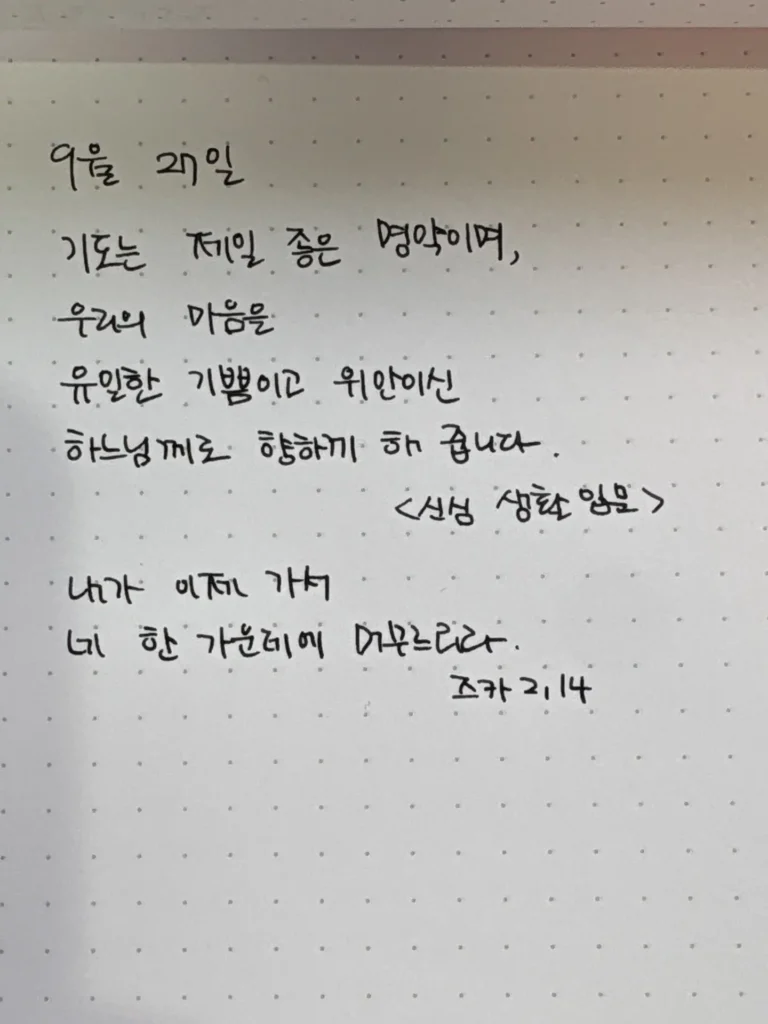 9월 27일
기도는 제일 좋은 명약이며,
우리의 마음을
유일한 기쁨이고 위안이신
하느님께로 향하게 해 줍니다.
<신심 생활 입문>
내가 이제 가서
네 한 가운데에 머무르리라.
즈카 2,14